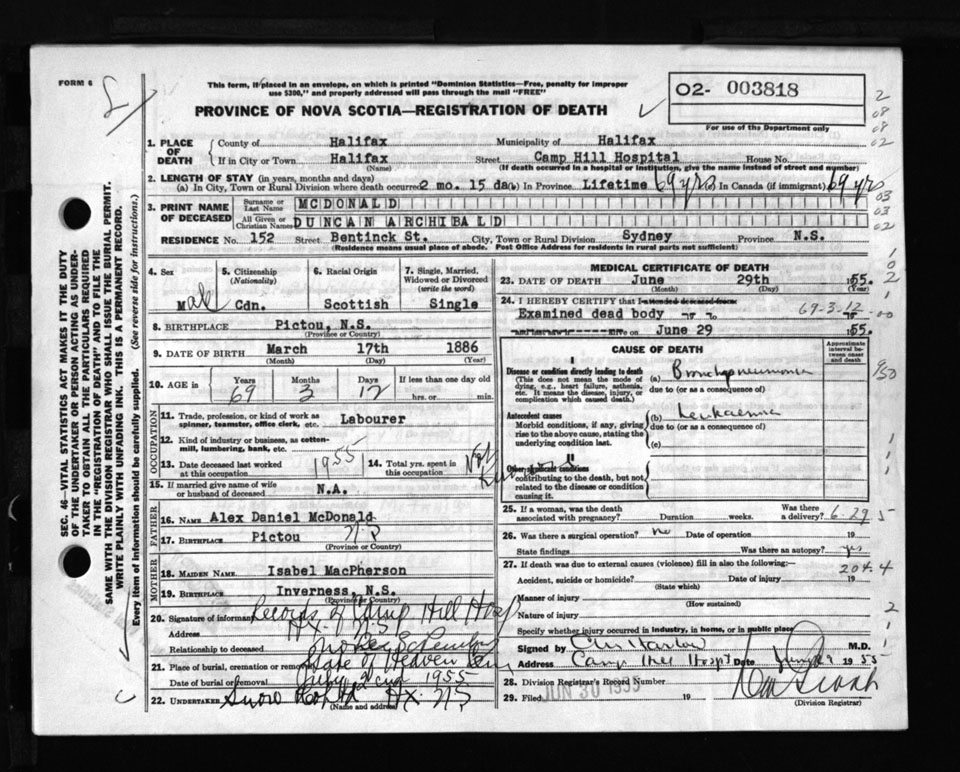 FORM 6
This form, if placed in an envelope, on which is printed "Dominion Statistics—Free, penalty for improper
use $300," and properly addressed will pass through the mail "FREE"
PROVINCE OF NOVA SCOTIA—REGISTRATION OF DEATH
O2- 003818
For use of the Department only
2
08
08
02
1. PLACE OF DEATH
County of Halifax Municipality of Halifax
If in City or Town Halifax Street Camp Hill Hospital House No.
(Name) (If death occurred in a hospital or institution, give the name instead of street and number)
2. LENGTH OF STAY (in years, months and days)
(a) In City, Town or Rural Division where death occurred 2 mo. 15 da (b) In Province Lifetime 69 yrs In Canada (if immigrant) 69 yrs
03
03
02
3. PRINT NAME OF DECEASED
Surname or Last Name MCDONALD
All Given or Christian Names DUNCAN ARCHIBALD
RESIDENCE No. 152 Street Bentinck St. City, Town or Rural Division Sydney Province N.S.
(Residence means usual place of abode. Post Office Address for residents in rural parts not sufficient)
SEC. 46—VITAL STATISTICS ACT MAKES IT THE DUTY
OF THE UNDERTAKER OR PERSON ACTING AS UNDER-
TAKER TO OBTAIN ALL THE PARTICULARS REQUIRED
IN THE "REGISTRATION OF DEATH" AND TO FILE THE
SAME WITH THE DIVISION REGISTRAR WHO SHALL ISSUE THE BURIAL PERMIT.
WRITE PLAINLY WITH UNFADING INK. THIS IS A PERMANENT RECORD.
Every item of information should be carefully supplied. (See reverse side for instructions.)
4. Sex Male
5. Citizenship (Nationality) Cdn.
6. Racial Origin Scottish
7. Single, Married, Widowed or Divorced (write the word) Single
8. BIRTHPLACE Pictou, N.S.
(Province or Country)
9. DATE OF BIRTH March 17th 1886
(Month) (Day) (Year)
10. AGE in Years 69 Months 3 Days 12 If less than one day old hrs. or min.
OCCUPATION
11. Trade, profession, or kind of work as
spinner, teamster, office clerk, etc. Labourer
12. Kind of industry or business, as cotton-
mill, lumbering, bank, etc.
13. Date deceased last worked
at this occupation 1955
14. Total yrs. spent in
this occupation
15. If married give name of wife
or husband of deceased N.A.
FATHER
16. NAME Alex Daniel McDonald
17. BIRTHPLACE Pictou
(Province or Country)
MOTHER
18. MAIDEN NAME Isabel MacPherson
19. BIRTHPLACE Inverness, N.S.
(Province or Country)
20. Signature of informant Records of Camp Hill Hosp
Address HX. N.S.
Relationship to deceased
21. Place of burial, cremation or removal Gate of Heaven Cem
Date of burial or removal July 2nd 1955
22. UNDERTAKER Snow HX. N.S
(Name and address)
MEDICAL CERTIFICATE OF DEATH
23. DATE OF DEATH June 29th 1955.
(Month) (Day) (Year)
24. I HEREBY CERTIFY that I attended deceased from
Examined dead body 69-3-12
June 29 1955.
CAUSE OF DEATH
Approximate interval between onset and death
I
Disease or condition directly leading to death
(This does not mean the mode of
dying, e.g., heart failure, asthenia,
etc. It means the disease, injury, or
complication which caused death.)
(a) Bronchopneumonia
due to (or as a consequence of)
Antecedent causes
Morbid conditions, if any, giving
rise to the above cause, stating the
underlying condition last.
(b) Leukaemia
due to (or as a consequence of)
(c)
II
Other significant conditions
contributing to the death, but not
related to the disease or condition
causing it.
25. If a woman, was the death
associated with pregnancy? Duration weeks. Was there
a delivery? 6-29 5
26. Was there a surgical operation? no Date of operation 19
State findings Was there an autopsy? yes
27. If death was due to external causes (violence) fill in also the following: 204.4
Accident, suicide or homicide? Date of injury 19
(State which)
Manner of injury
(How sustained)
Nature of injury
Specify whether injury occurred in industry, in home, or in public place
Signed by M.D.
Address Camp Hill Hospt Date June 29 1955
28. Division Registrar's Record Number
29. Filed JUN 30 1955 19
(Division Registrar)